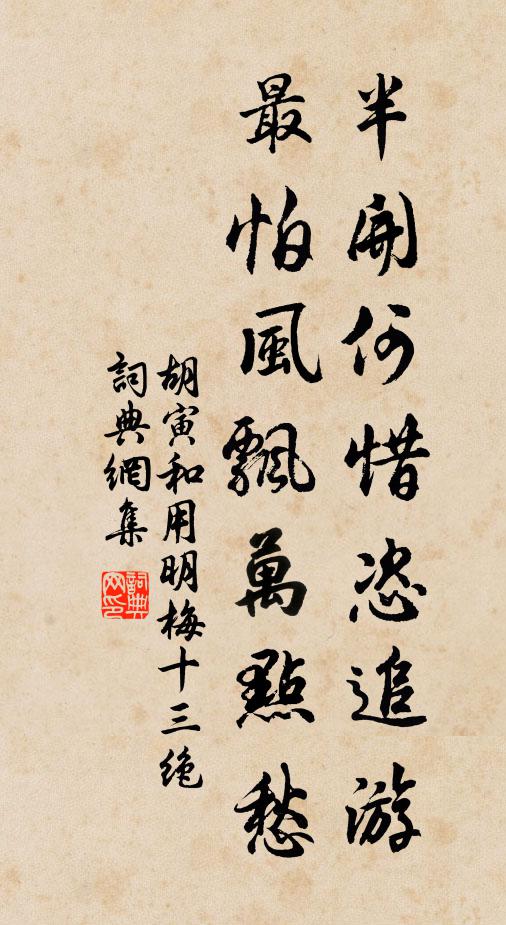 半開何惜恣追游
最怕風飄萬點愁
胡寅和用明梅十三绝
詞典網集
詞典
网印